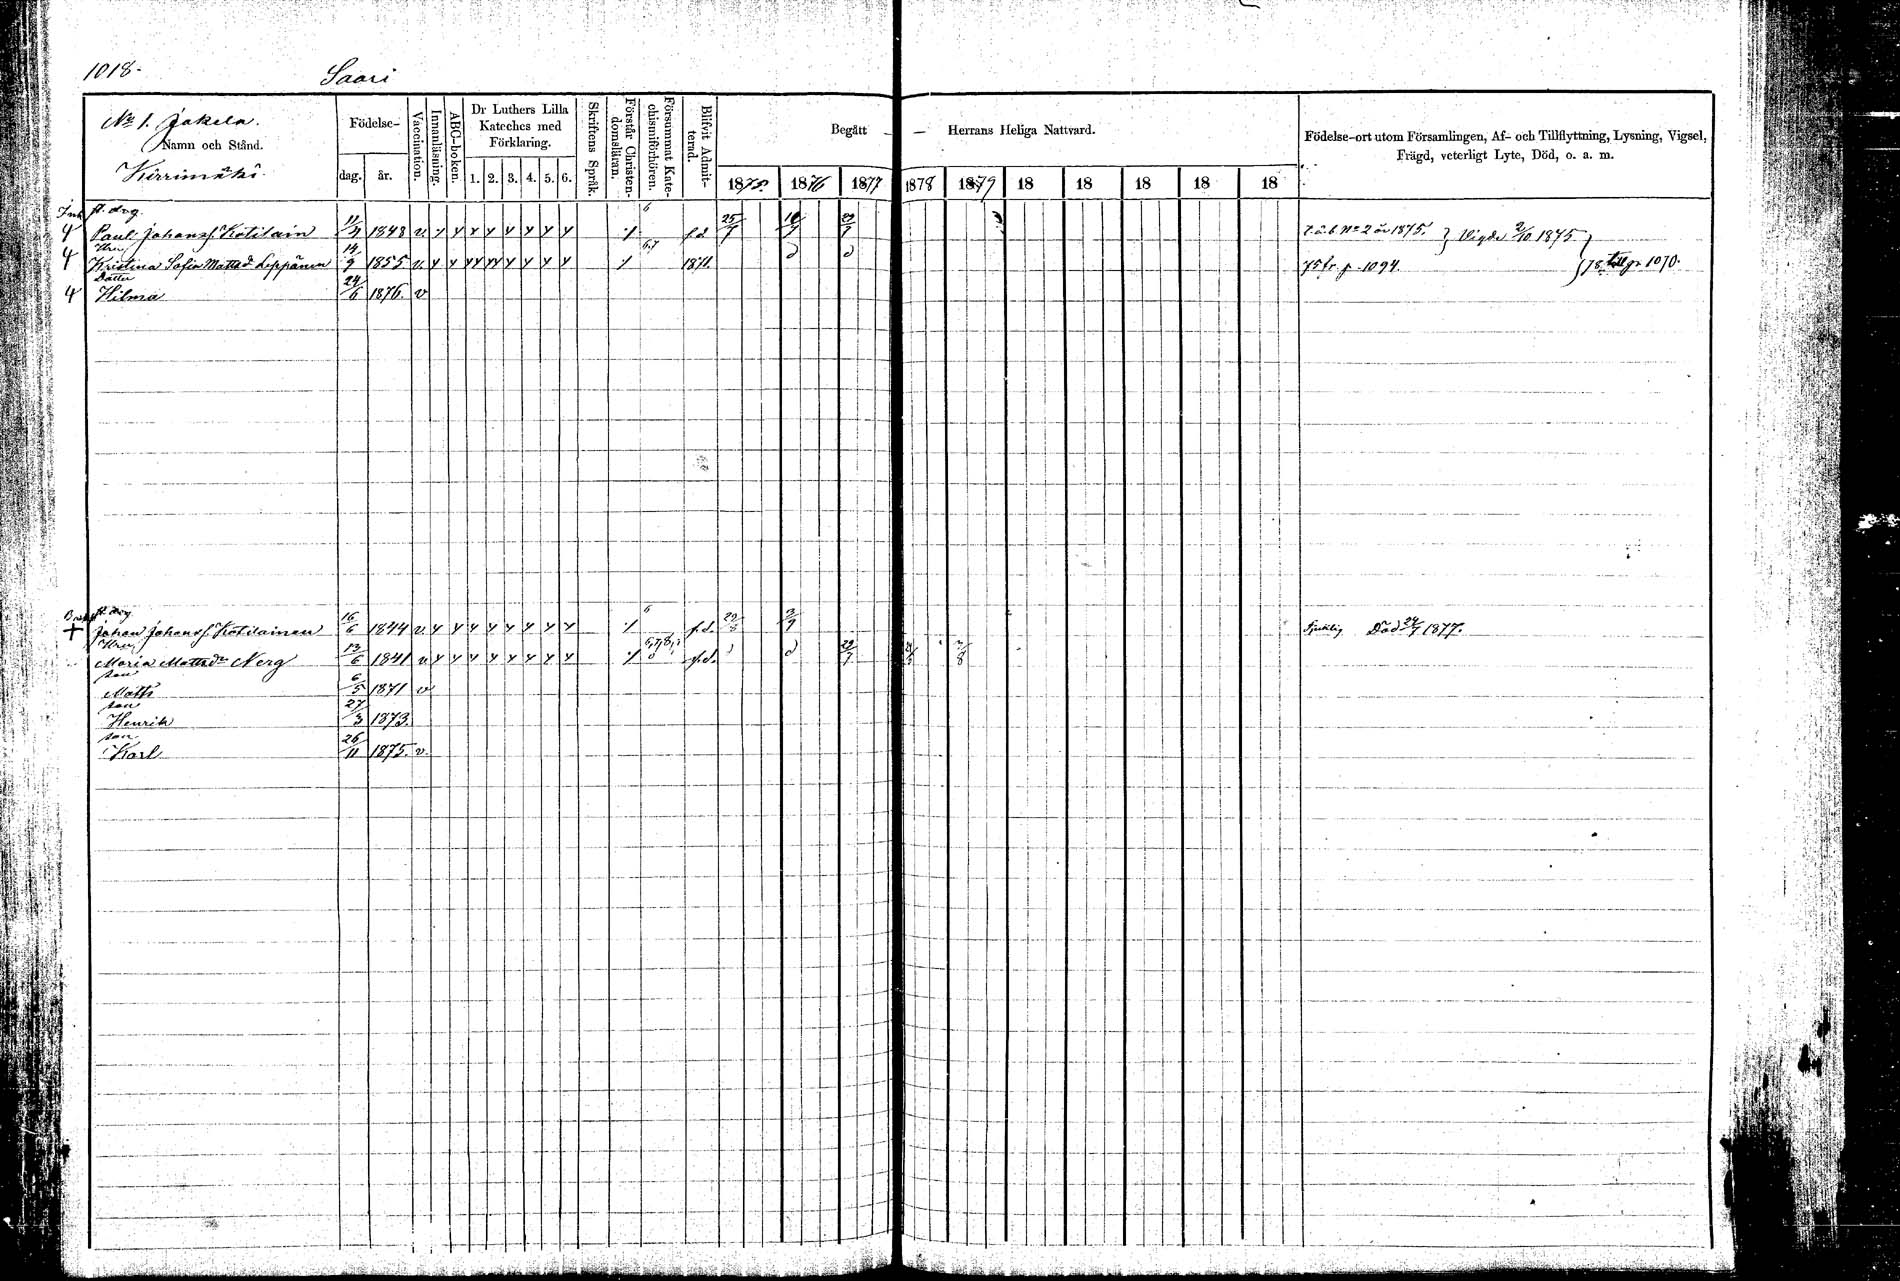 1018.
Saari
No 1. Jakela.
Namn och Stånd.
Kirrimäki
Födelse-
dag.
år.
Vaccination.
Innanläsning.
ABC-boken.
Dr Luthers Lilla
Kateches med
Förklaring.
1. 2. 3. 4. 5. 6.
Skriftens Språk.
Förstår Christen-
domsläran.
Försummat Kate-
chismiförhören.
Blifvit Admit-
terad.
Begått — — Herrans Heliga Nattvard.
1875 1876 1877 1878 1879 18 18 18 18 18
Födelse-ort utom Församlingen, Af- och Tillflyttning, Lysning, Vigsel,
Frägd, veterligt Lyte, Död, o. a. m.
Paul Johanss. Kotilain 1848 v. f.d. 25/7 Vigde 2/10 1875
6,7
Kristina Sofia Mattsd. Leppänen 14/9 1855 v. 1871. 75 fr p. 1094. 78 till p. 1070.
Dotter
Hilma 24/6 1876. v
6
Johan Johanss. Kotilainen 16/6 1844 v. f.d. Död 24/7 1877.
Maria Mattsdr Nerg 13/6 1841 v. f.d.
son
Matts 6/5 1871 v
son
Henrik 27/3 1873.
son
Karl 26/11 1875. v.